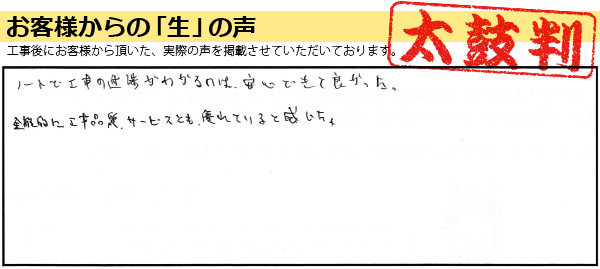 お客様からの「生」の声
工事後にお客様から頂いた、実際の声を掲載させていただいております。
太鼓判
ノートで工事の進捗がわかるのは、安心できて良かった。
全般的に工事品質、サービスとも、優れていると感じた。